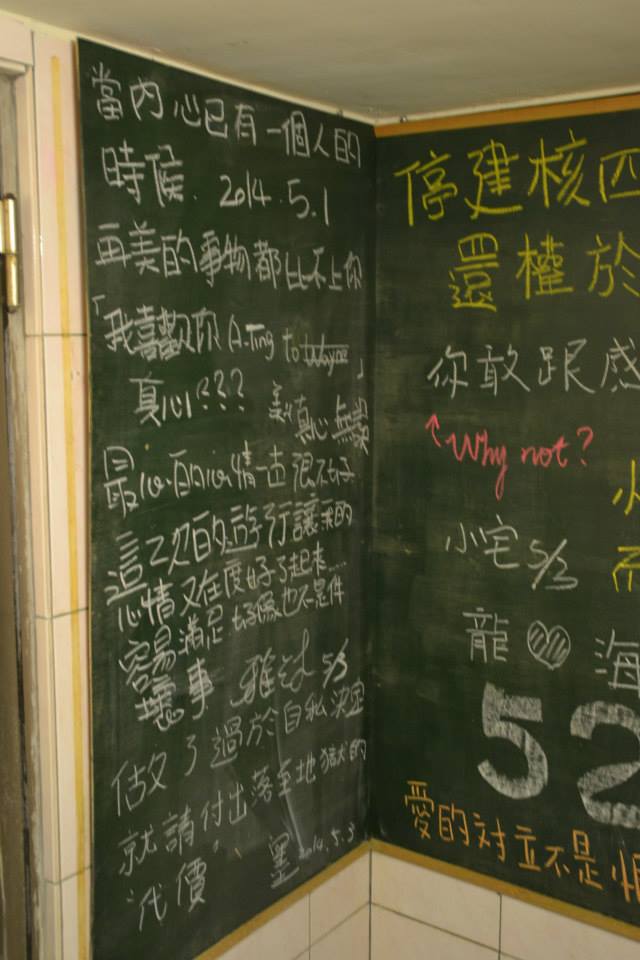 當內心已有一個人的
時候. 2014.5.1
再美的事物都比不上你
「我喜歡你 A-Ting to Wayne」
真心???
真心無價
最近的心情一直很不好
這次的遊行讓我的
心情又在度好了起來......
容易滿足好像也不是件
壞事 5/3
做了過於自私決定
就請付出落至地獄的
代價 墨 2014.5.3
停建核四
還權於
你敢跟感
↑Why not?
小宅 5/3
龍♡海
52
愛的対立不是